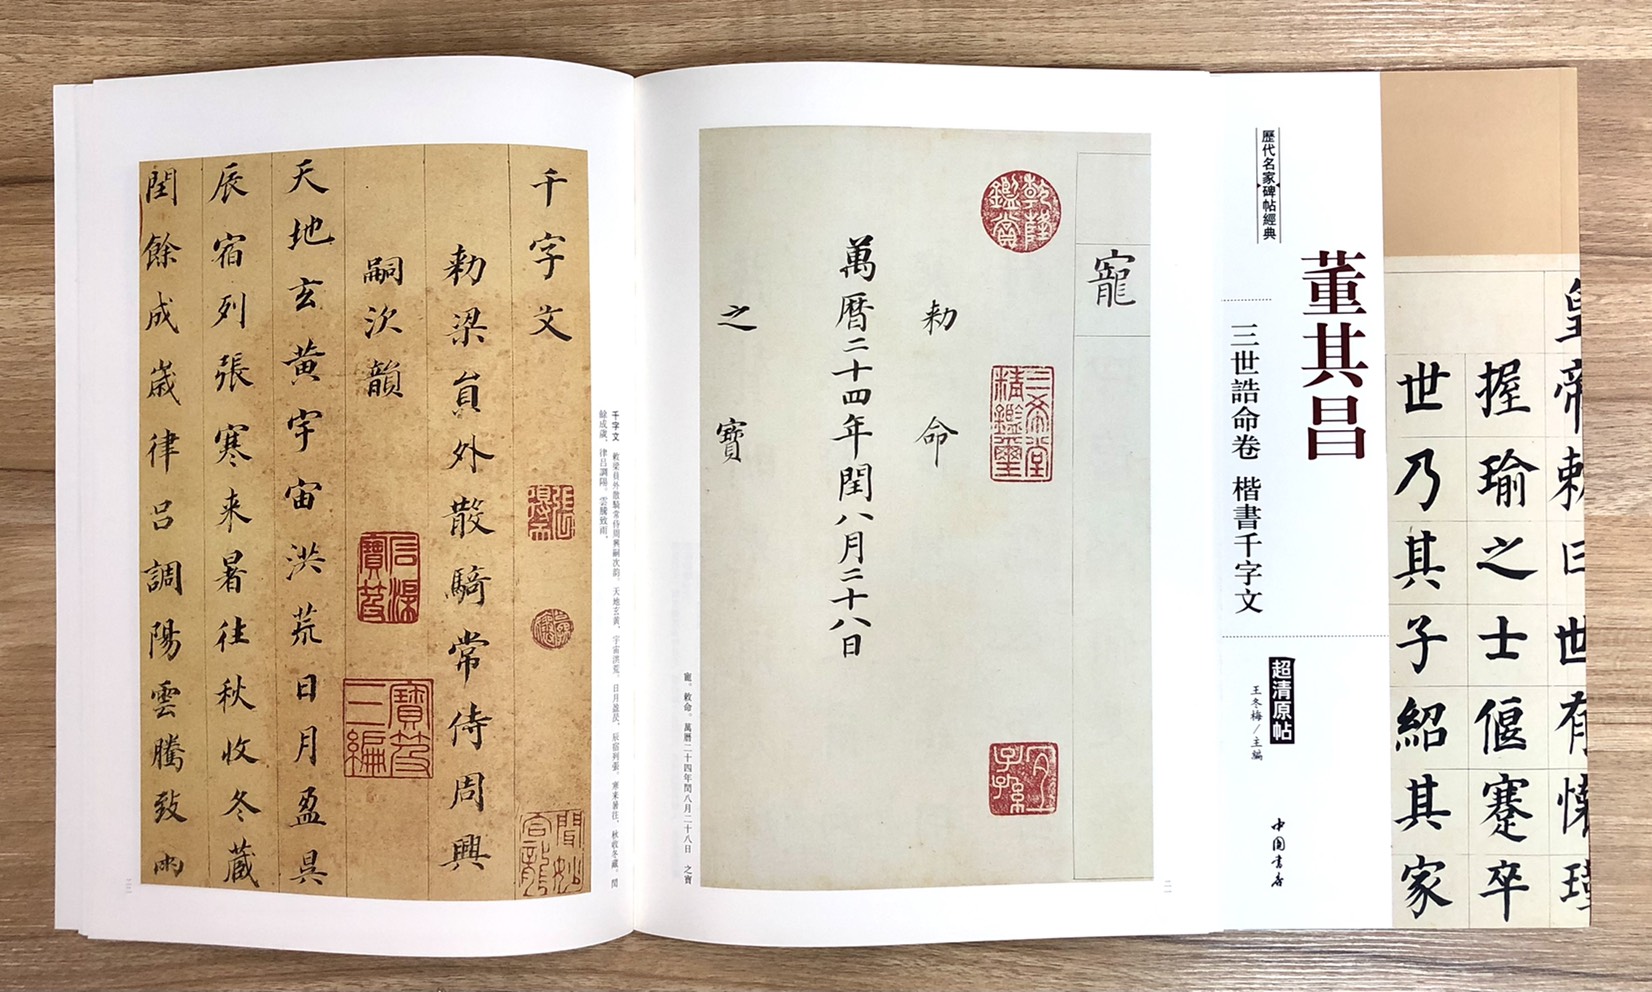 皇帝敕曰世有懷瑾
握瑜之士偃蹇卒
世乃其子紹其家
歷代名家碑帖經典
董其昌
三世誥命卷 楷書千字文
超清原帖
王冬梅/主編
中國書店
寵
乾隆鑑賞
三希堂精鑑璽
宜子孫
勑命
萬曆二十四年閏八月二十八日
之寶
寵。敕命。萬曆二十四年閏八月二十八日 之寶
千字文 敕梁員外散騎常侍周興嗣次韵。天地玄黃，宇宙洪荒。日月盈昃，辰宿列張。寒來暑往，秋收冬藏。閏
餘成歲，律呂調陽。雲騰致雨，
千字文
勑梁員外散騎常侍周興
嗣次韻
石渠寶笈
寶笈三編
天地玄黃宇宙洪荒日月盈昃
辰宿列張寒来暑往秋收冬藏
閏餘成歲律呂調陽雲騰致雨